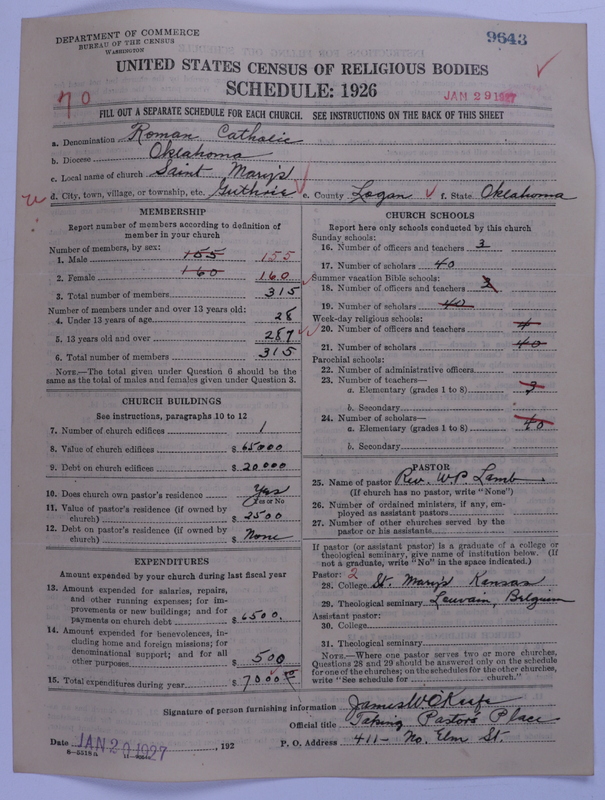 DEPARTMENT OF COMMERCE
BUREAU OF THE CENSUS
WASHINGTON
9643
UNITED STATES CENSUS OF RELIGIOUS BODIES
SCHEDULE: 1926
JAN 29 1927
70
FILL OUT A SEPARATE SCHEDULE FOR EACH CHURCH. SEE INSTRUCTIONS ON THE BACK OF THIS SHEET
a. Denomination Roman Catholic
b. Diocese Oklahoma
c. Local name of church Saint Mary's
d. City, town, village, or township, etc. Guthrie e. County Logan f. State Oklahoma
MEMBERSHIP
Report number of members according to definition of
member in your church
Number of members, by sex:
1. Male 155 155
2. Female 160 160
3. Total number of members 315
Number of members under and over 13 years old:
4. Under 13 years of age 28
5. 13 years old and over 287
6. Total number of members 315
NOTE.—The total given under Question 6 should be the
same as the total of males and females given under Question 3.
CHURCH BUILDINGS
See instructions, paragraphs 10 to 12
7. Number of church edifices 1
8. Value of church edifices $ 65000
9. Debt on church edifices $ 20.000
10. Does church own pastor's residence Yes
Yes or No
11. Value of pastor's residence (if owned by
church) $ 2500
12. Debt on pastor's residence (if owned by
church) $ None
EXPENDITURES
Amount expended by church during last fiscal year
13. Amount expended for salaries, repairs,
and other running expenses; for im-
provements or new buildings; and for
payments on church debt $ 6500.
14. Amount expended for benevolences, in-
cluding home and foreign missions; for
denominational support; and for all
other purposes $ 500
15. Total expenditures during year $ 7000
CHURCH SCHOOLS
Report here only schools conducted by this church
Sunday schools:
16. Number of officers and teachers 3
17. Number of scholars 40
Summer vacation Bible schools:
18. Number of officers and teachers 3
19. Number of scholars 40
Week-day religious schools:
20. Number of officers and teachers 4
21. Number of scholars 40
Parochial schools:
22. Number of administrative officers
23. Number of teachers—
a. Elementary (grades 1 to 8) 3
b. Secondary
24. Number of scholars—
a. Elementary (grades 1 to 8) 40
b. Secondary
PASTOR
25. Name of pastor Rev. W.P. Lamb
(If church has no pastor, write "None")
26. Number of ordained ministers, if any, em-
ployed as assistant pastors
27. Number of other churches served by the
pastor or his assistants
If pastor (or assistant pastor) is a graduate of a college or
theological seminary, give name of institution below. (If
not a graduate, write "No" in the space indicated.)
Pastor: 2
28. College St. Mary's Kansas
29. Theological seminary Louvain, Belgium
Assistant pastor:
30. College
31. Theological seminary
NOTE.—Where one pastor serves two or more churches,
Questions 28 and 29 should be answered only on the schedule
for one of the churches; on the schedules for the other churches,
write "See schedule for church."
Signature of person furnishing information James W. O'Keefe
Official title Taking Pastor's Place
Date JAN 29 1927, 192 P. O. Address 411— No. Elm St.